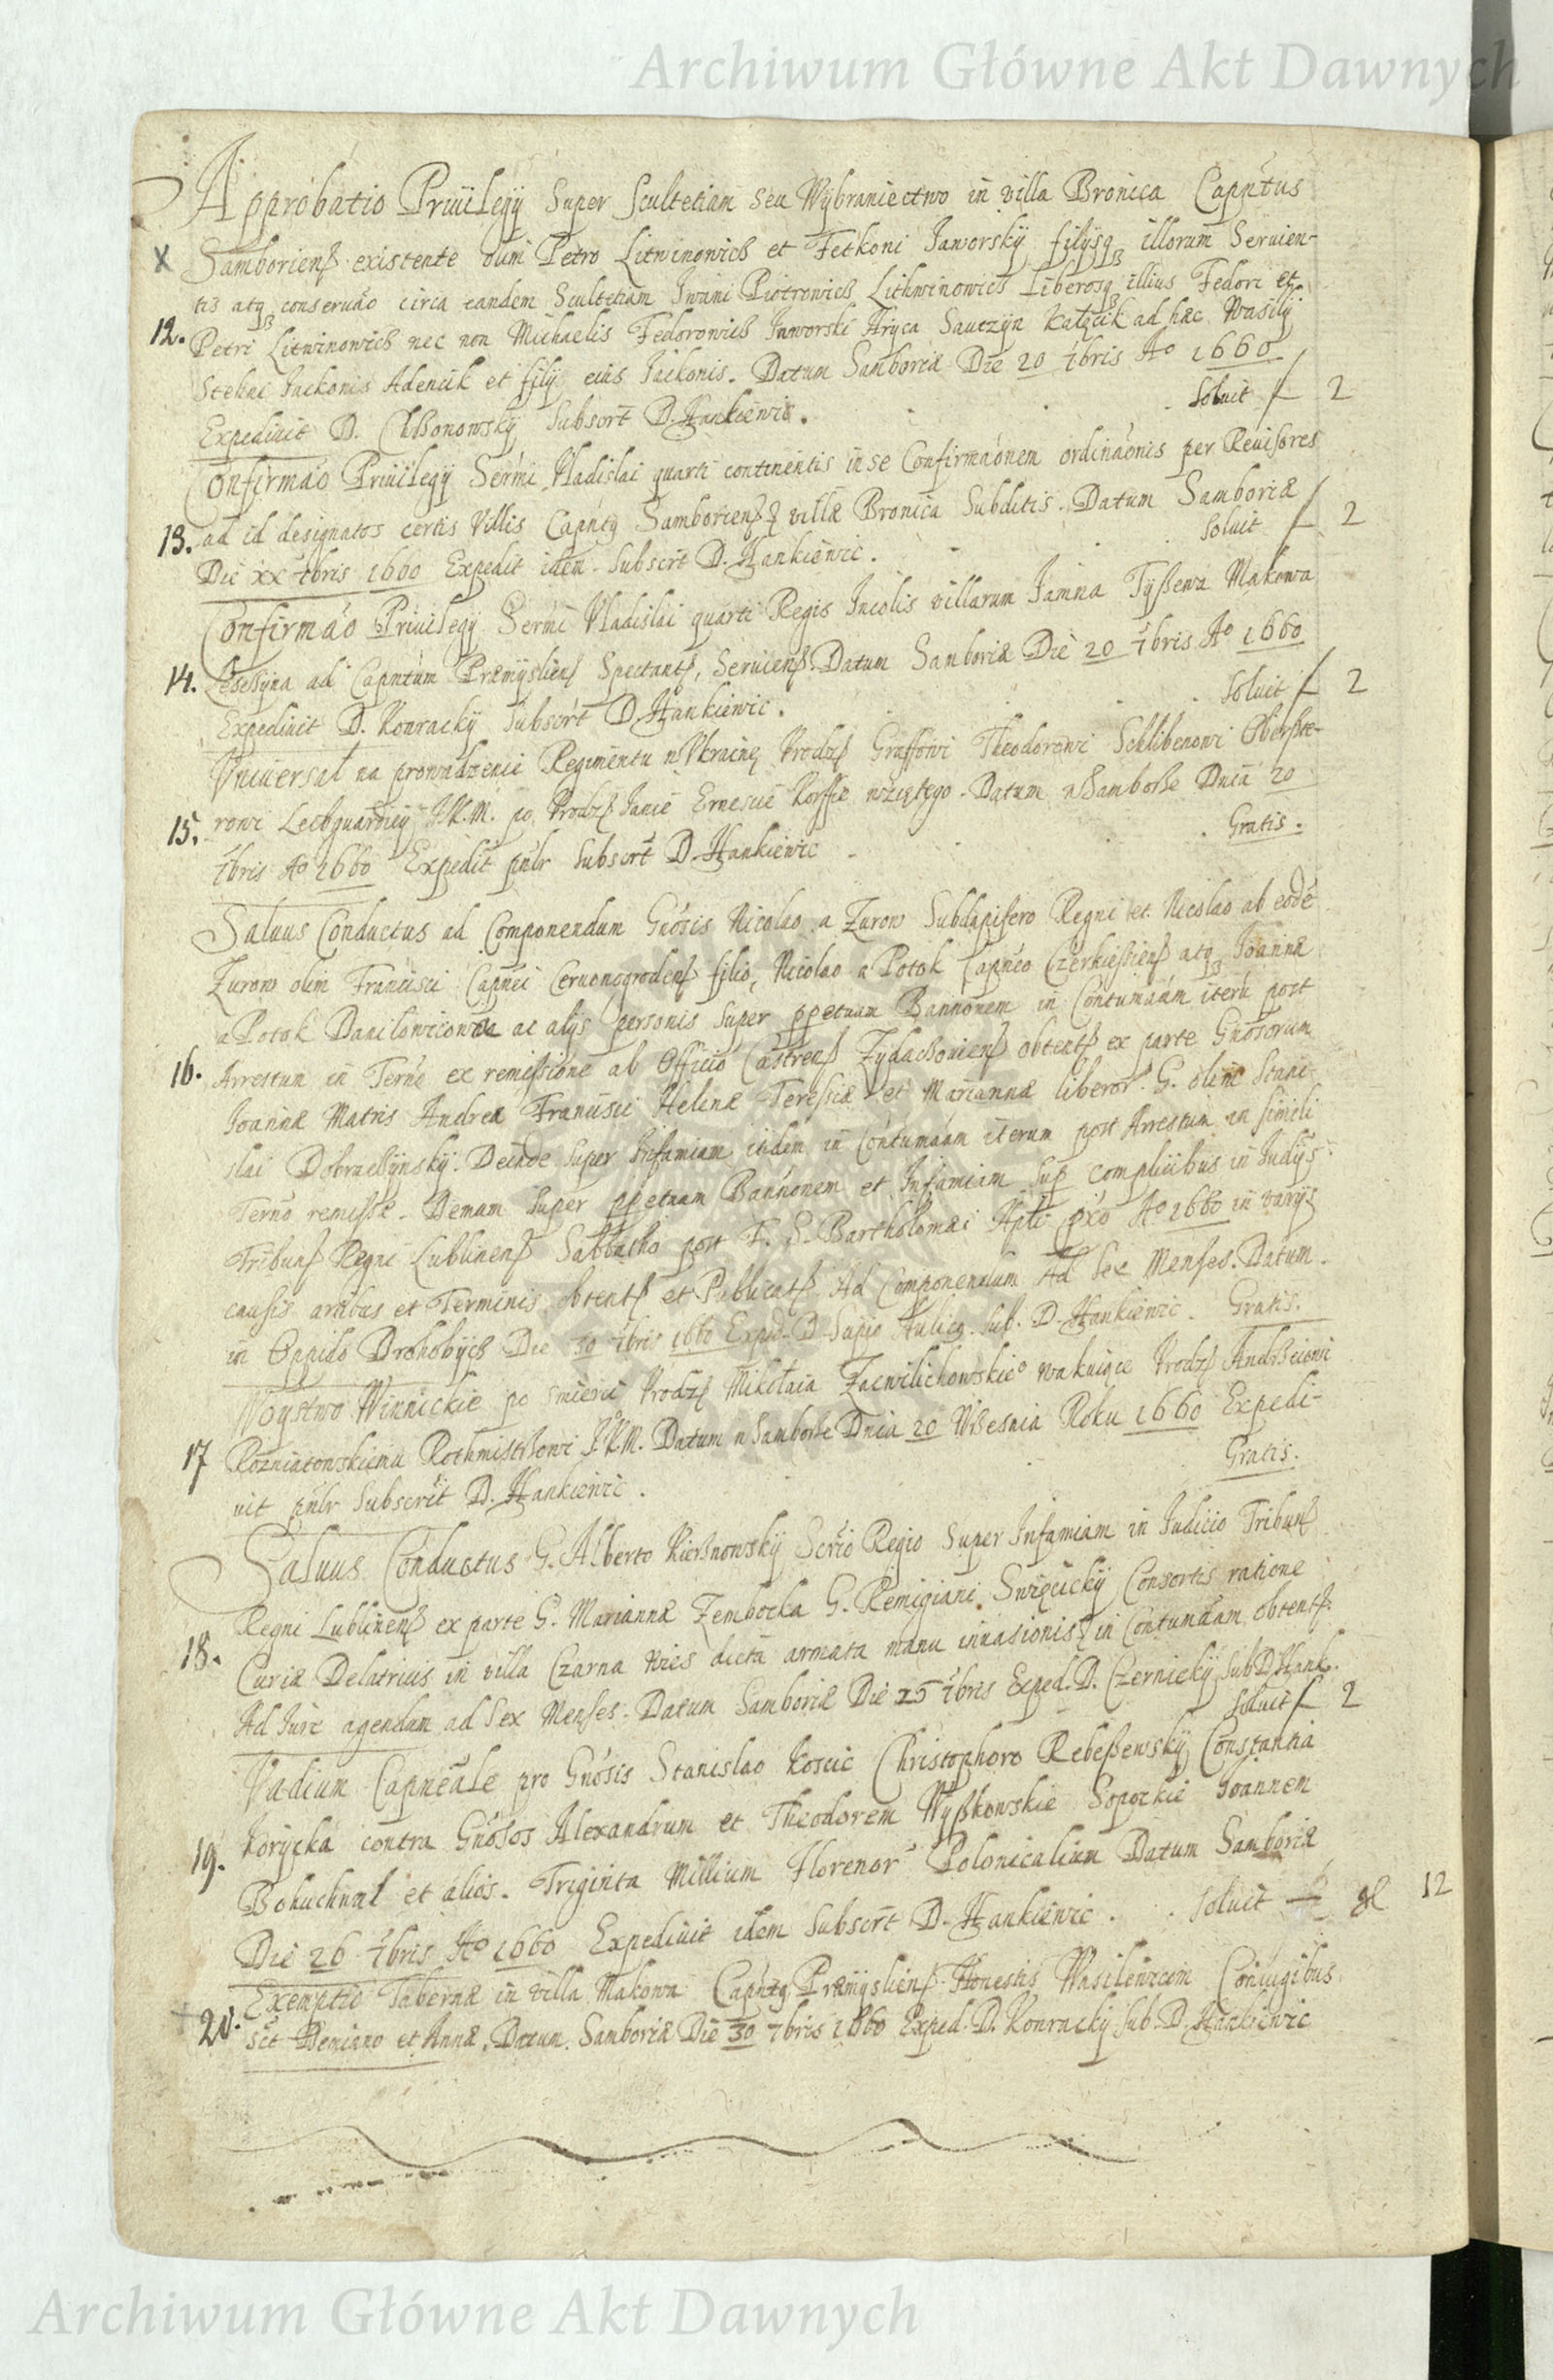 Archiwum Główne Akt Dawnych
Approbatio Priuilegÿ Super Scultetiam seu Wybraniectwo in villa Bronica Capntus
X Samboriens existente olim Petro Litwinowich et Fetkoni Jaworskÿ filÿsq illorum Seruien-
tis atq conseruao circa eandem Scultetiam Iwani Piotrowich Lithwinowich Liberosq illius Fedori et
12. Petri Litwinowich nec non Michaelis Fedorowich Jaworski Hryca ad hæc Wasilÿ
Stehac Jackonis Adencik et filÿ eius Jackonis. Datum Samboriæ Die 20 7bris Ao 1660
Expediuit D. Subscrt D. Hankiewic. Soluit f 2
Confirmao Priuilegÿ Sermi Vladislai quarti continentis in se Confirmaonem ordinaonis per Reuisores
13. ad id designatos certis Villis Capntq Samboriens villæ Bronica Subditis. Datum Samboriæ
Die xx 7bris 1660 Expedit idem Subscrt D. Hankiewic. Soluit f 2
Confirmao Priuilegÿ Sermi Vladislai quarti Regis Incolis villarum Jamna Tyßewa Makowa
14. ad Capntum Præmÿsliens Spectants, Seruiens. Datum Samboriæ Die 20 7bris Ao 1660
Expediuit D. Konrackÿ Subscrt D. Hankiewic. Soluit f 2
Vniuersal na prowadzenie Regimentu n Vkrainę Vrodzs Graffowi Theodorowi Schlibenowi Obersste-
15. rowi Leibguardiey J.K.M. po Vrodzs Janie Ernescie Korffie wziętego. Datum w Samborze Dnia 20
7bris Ao 1660 Expedit pnlr Subscrt D. Hankiewic Gratis.
Saluus Conductus ad Componendum Gnosis Nicolao a Zurow Subdapifero Regni et Nicolao ab eode
Zurow olim Francisci Capnei Ceruonogrodens filio, Nicolao a Potok Capneo atq Joannæ
a Potok Danilowiconæ ac alijs personis Super ppetuam Bannonem in Contumaam iteru post
16. Arrestum in Terno ex remissione ab Officio Castrens Zydachoviens obtents ex parte Gnosorum
Joannæ Matris Andreæ Francisci Helenæ Teressiæ et Mariannæ liberor G. olim Stani-
slai Dobraczÿnskÿ. Deinde Super Infamiam itidem in Contumaam iterum post Arrestum in simili
Terno remissæ. Demum Super ppetuam Bannonem et Infamiam Sup complicibus in Judÿs
Tribuns Regni Lublinens Sabbatho post F. S. Bartholomæi Apli pxo Ao 1660 in varÿs
causis artibus et Terminis obtents et Publicats Ad Componendum Ad Sex Menses. Datum
in Oppido Drohobÿch Die 30 7bris 1660 Exped. D Aulicq. Sub. D. Hankiewic. Gratis.
Woÿstwo Winnickie po smierci Vrodzs Mikołaia Zacwilichowskieo wakuiące Vrodzs
17 Rozniatowskiemu Rothmistrzowi J.K.M. Datum w Samborze Dnia 20 Wrzesnia Roku 1660 Expedi-
uit pnlr Subscrit D. Hankiewic. Gratis.
Saluus Conductus G. Alberto Kierznowskÿ Scrio Regio Super Infamiam in Iudicio Tribuns
Regni Lublinens ex parte G. Mariannæ Zembocka G. Remigiani Swięcickÿ Consortis ratione
18. Curiæ Delatricis in villa Czarna Wies dicta armata manu inuasionis in Contumaam obtents.
Ad Iure agendum ad Sex Menses. Datum Samboriæ Die 25 7bris Exped. D. Czernickÿ Sub D Hank.
Soluit f 2
Vadium Capneale pro Gnosis Stanislao Koscic Christophoro Rebeßewskÿ Constantia
19. Korÿcka contra Gnosos Alexandrum et Theodorem Wyßkowskie Sopockie Joannem
Bohuchwal et alios. Triginta Millium Florenor Polonicalium Datum Samboriæ
Die 26 7bris Ao 1660 Expediuit idem Subscrt D. Hankiewic. Soluit 12
Exemptio Tabernæ in villa Makowa Capntq Præmÿsliens Honestis Wasilewicom Coniugibus
20. sct Demiano et Annæ. Datum. Samboriæ Die 30 7bris 1660 Exped. D. Konrackÿ Sub. D. Hankiewic
Archiwum Główne Akt Dawnych